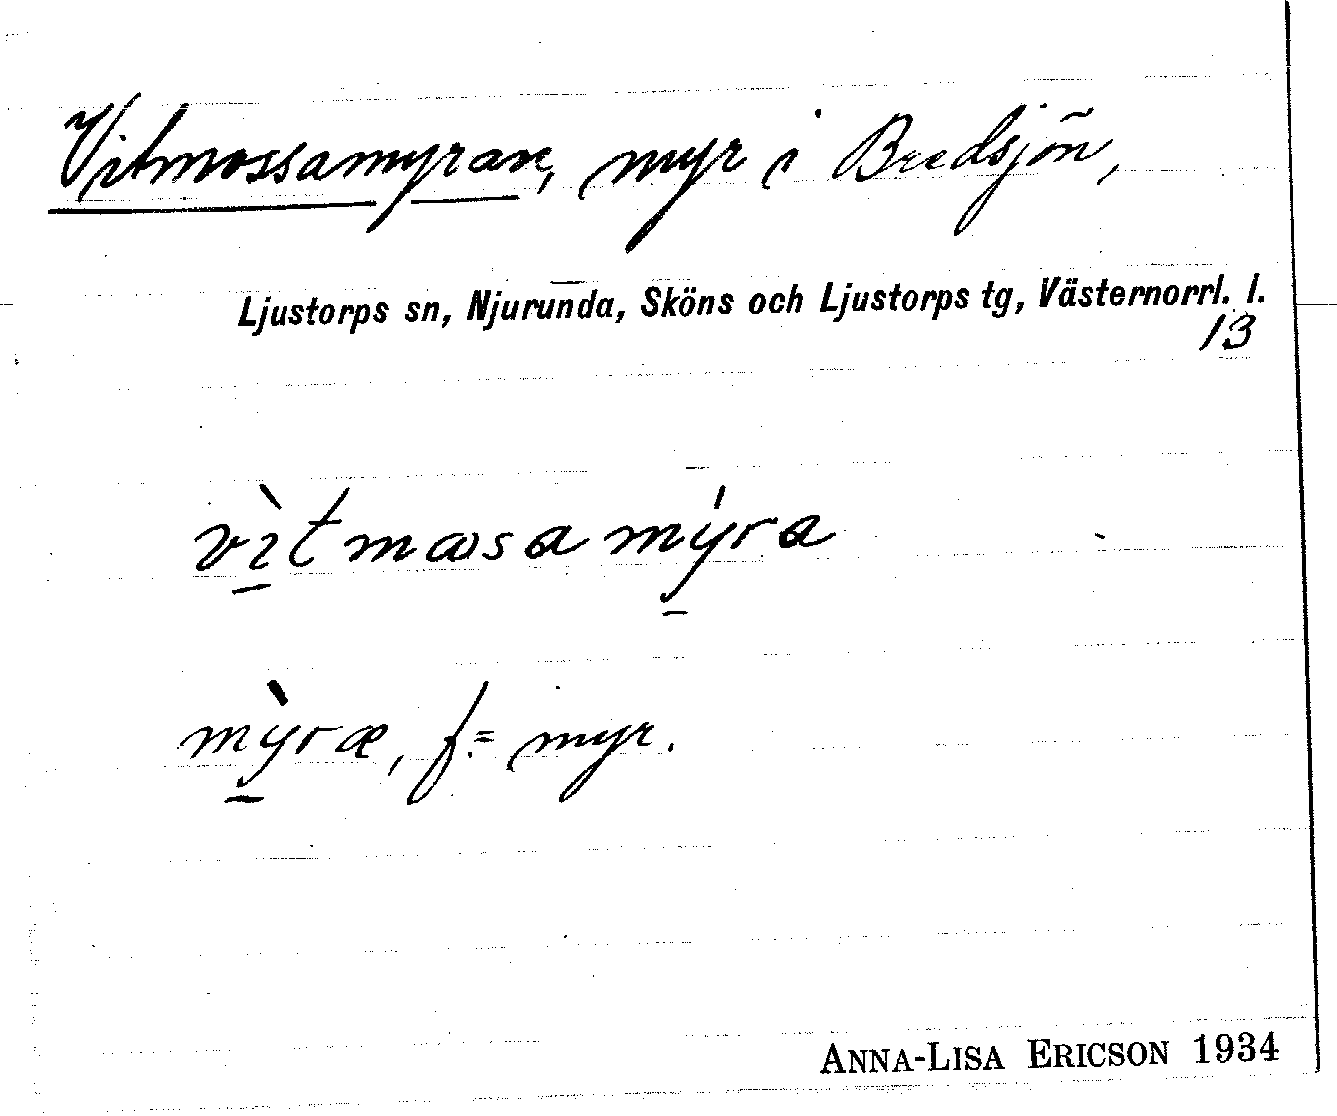 Vitmossamyran, myr i Bredsjön,
Ljustorps sn, Njurunda, Sköns och Ljustorps tg, Västernorrl. l.
13
vìtmɷsamýra
mỳræ, f. = myr.
ANNA-LISA ERICSON 1934